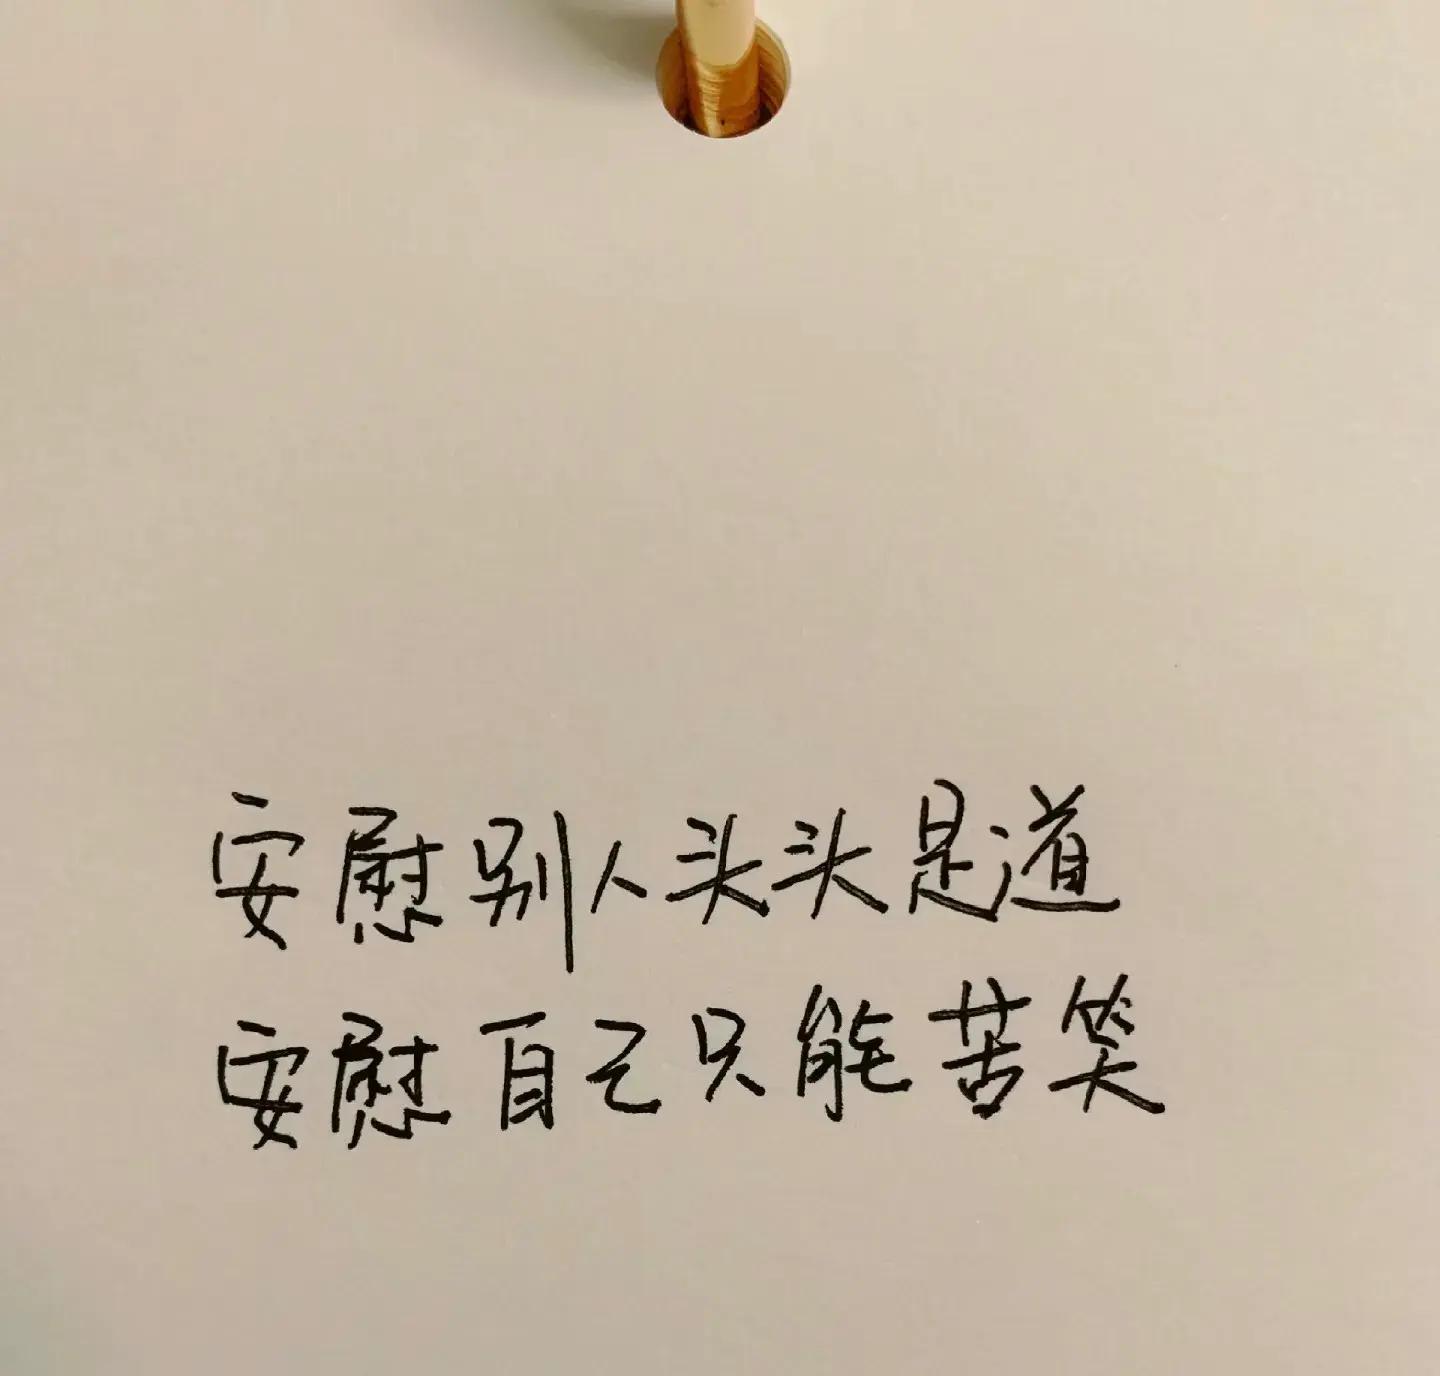 安慰别人头头是道
安慰自己只能苦笑